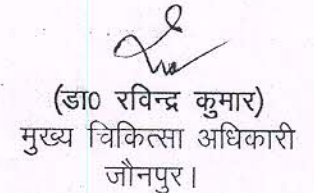 (डा0 रविन्द्र कुमार)
मुख्य चिकित्सा अधिकारी
जौनपुर।